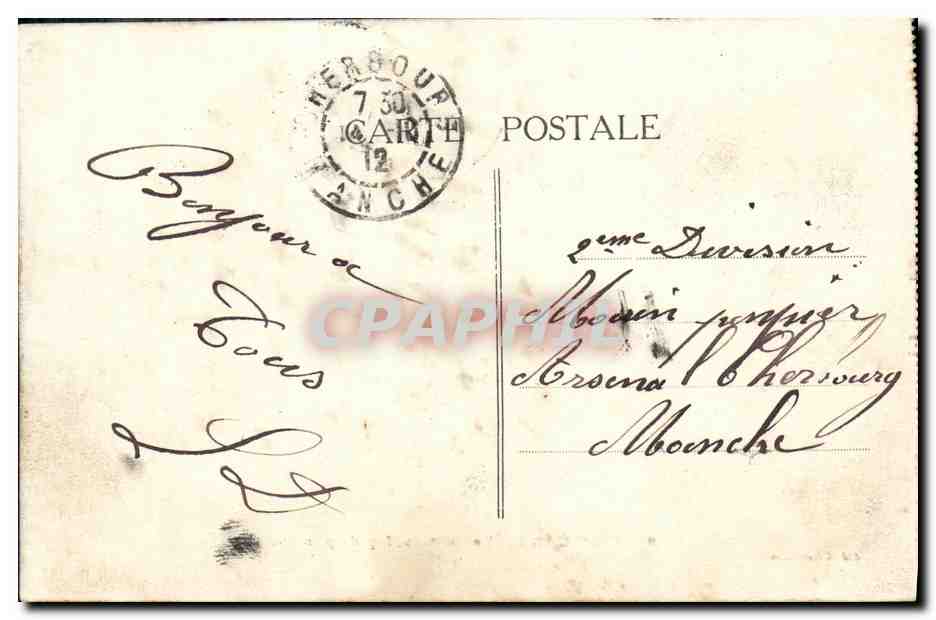 CARTE POSTALE
CHERBOURG
7 30
12
MANCHE
Bonjour a
Tous
2eme Division
pompier
Arsenal Cherbourg
Manche
CPAPHIL